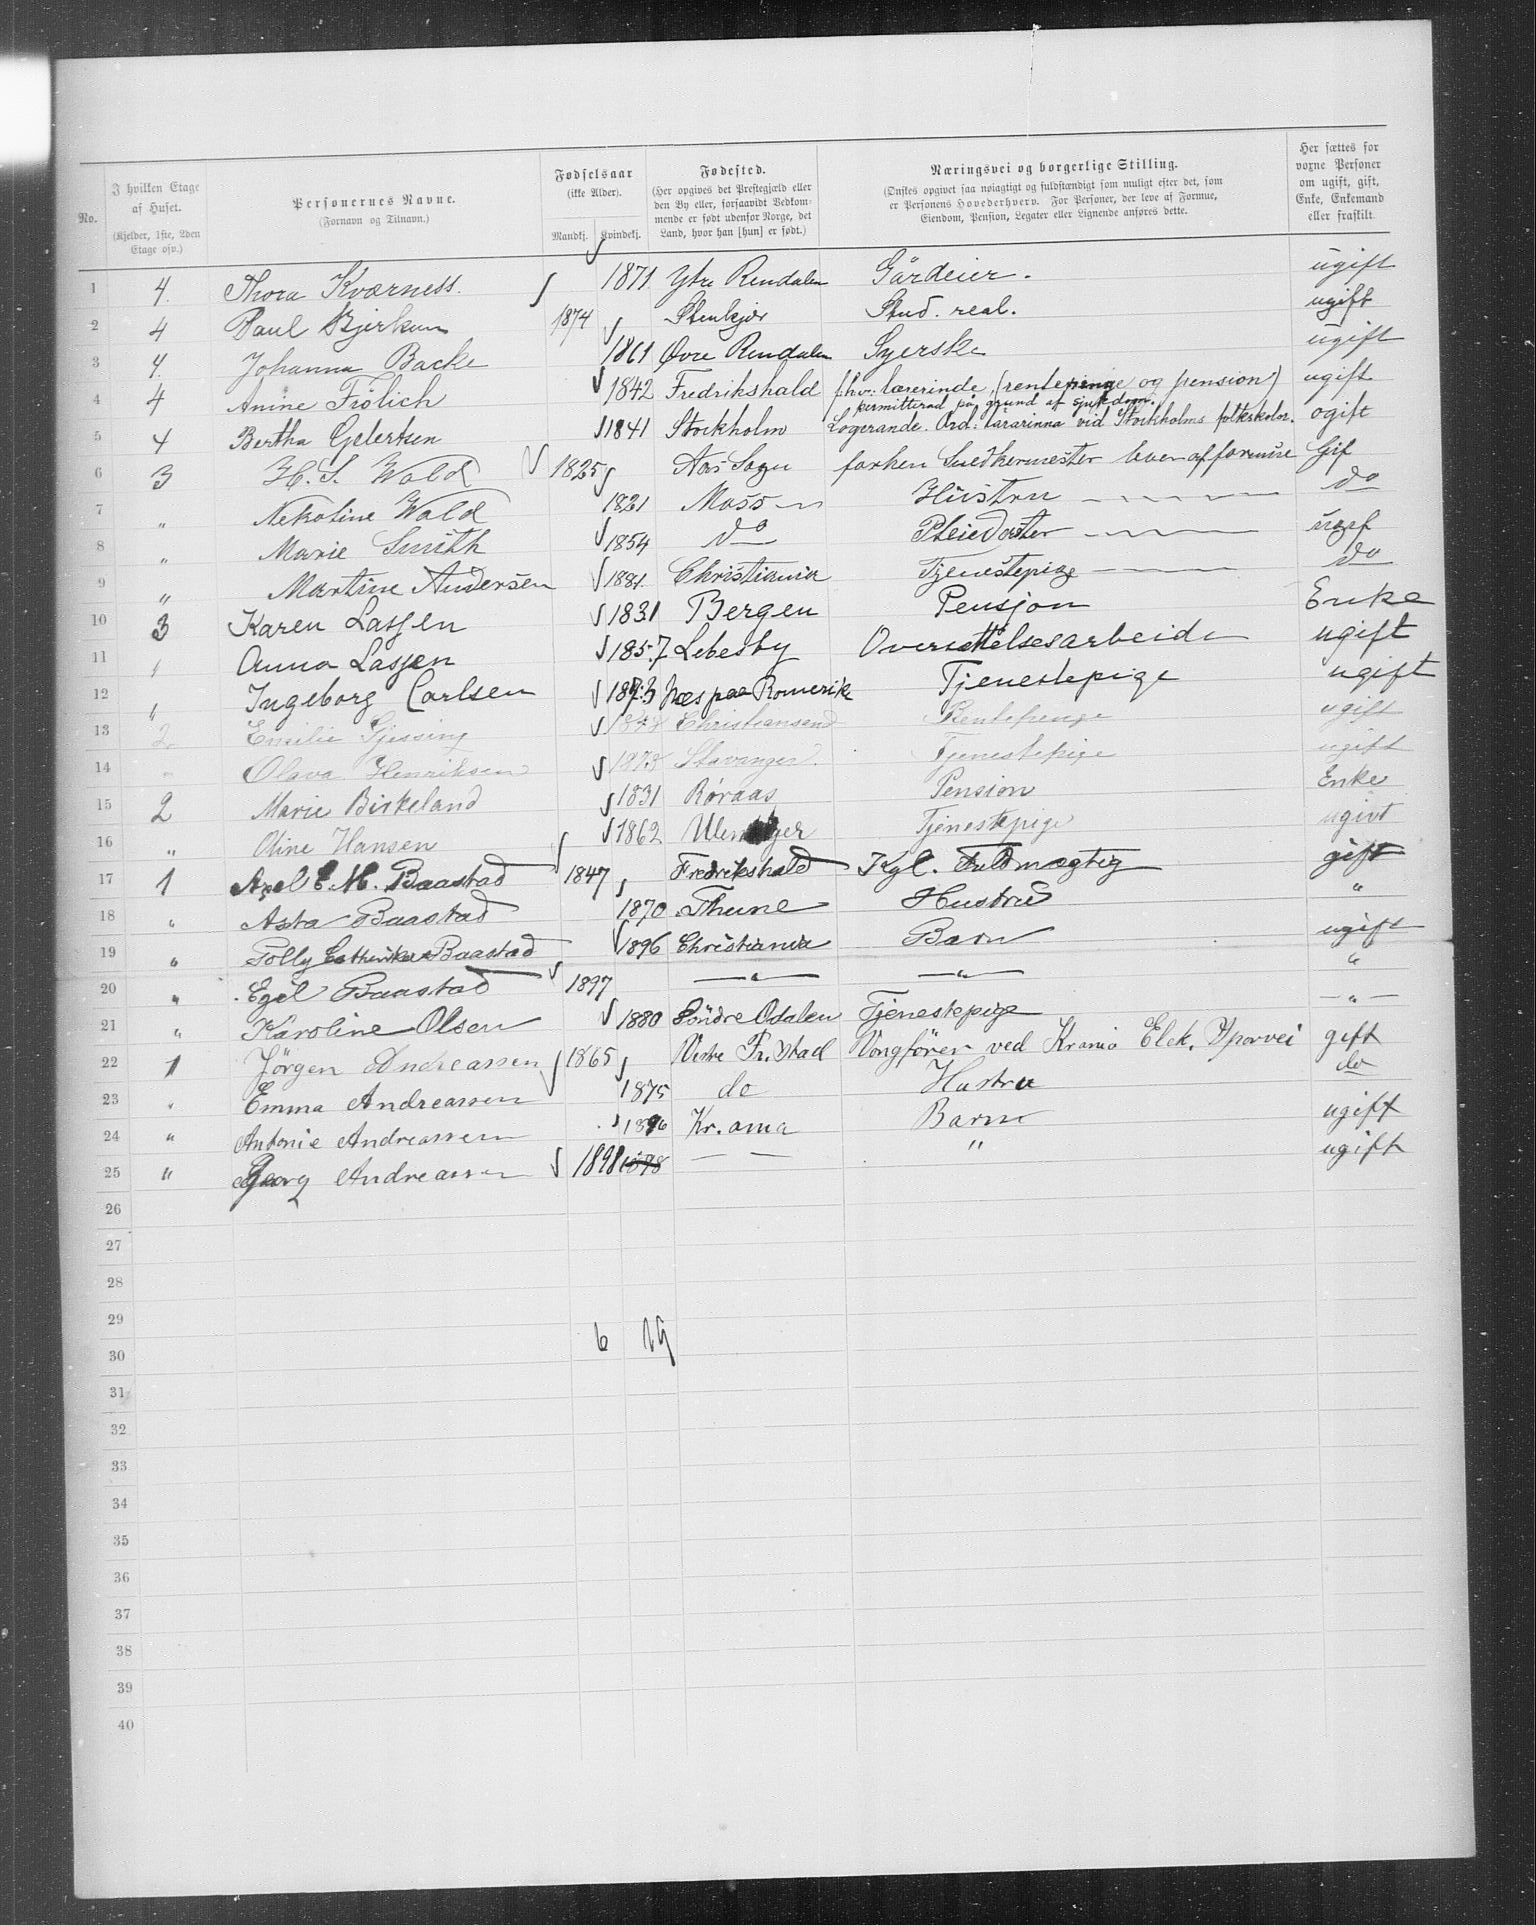 No. | I hvilken Etage af Huset. (Kjelder, 1ste, 2den Etage osv.) | Personernes Navne. (Fornavn og Tilnavn.) | Fødselsaar (ikke Alder). Mandkj. Kvindekj. | Fødested. (Her opgives det Prestegjæld eller den By eller, forsaavidt Vedkommende er født udenfor Norge, det Land, hvor han [hun] er født.) | Næringsvei og borgerlige Stilling. (Ønskes opgivet saa nøiagtigt og fuldstændigt som muligt efter det, som er Personens Hovederhverv. For Personer, der leve af Formue, Eiendom, Pension, Legater eller Lignende anføres dette. | Her sættes for voxne Personer om ugift, gift, Enke, Enkemand eller fraskilt.
1 4. Thora Kværness. 1871 Ytre Rendalen Gårdeier. ugift
2 4 Paul Bjerkem 1874 Stenkjær Stud. real. ugift
3 4. Johanna Backe 1861 Øvre Rendalen Syerske ugift
4 4 Anine Frölich 1842 Fredrikshald f.hv. lærerinde. (rentepenge og pension) ugift
permitterad på grund af sjukdom.
5 4 Bertha Gelertsen 1841 Stockholm Logerande. Ord. lärarinna vid Stockholms folkskolor. ogift
6 3 H. S. Wold 1825 Aas Sogn forhen Snedkermester lever af formue Gif
7 " Nekoline Wold 1821 Moss Hüstru do
8 " Marie Smith 1854 do Pleiedatter ugef
9 " Martine Andersen 1881. Christiania Tjenestepige do
10 3 Karen Lassen 1831 Bergen Pensjon Enke
11 " Anna Lassen 1857 Lebesby Oversættelsesarbeide ugift
12 " Ingeborg Carlsen 1873 Næs paa Romerike Tjenestepige ugift
13 2. Emilie Gjessing Christiansand Rentepenge ugift
14 " Olava Henriksen 1873 Stavanger. Tjenestepige ugift
15 2 Marie Birkeland 1831 Røraas Pension Enke
16 " Oline Hansen 1862 Tjenestepige ugivt
17 1 Axel E. M. Baastad 1847 Fredrikshald Kgl. Fuldmægtig gift
18 " Asta Baastad 1870 Thune Hustru "
19 " Polly Baastad 1896 Christiania Barn ugift
20 " Egil Baastad 1897 — " — — " — "
21 " Karoline Olsen 1880 Söndre Odalen Tjenestepige — " —
22 1 Jörgen Andreassen 1865 Vestre Fr. stad Vongfören ved Krania Elek. Sporvei gift
23 " Emma Andreassen 1875 do Hustru do
24 " Antonie Andreassen 1896 Kr. ania Barn ugift
25 " Georg Andreassen 1898 1898 — — " ugift
26
27
28
29
6 19
30
31
32
33
34
35
36
37
38
39
40